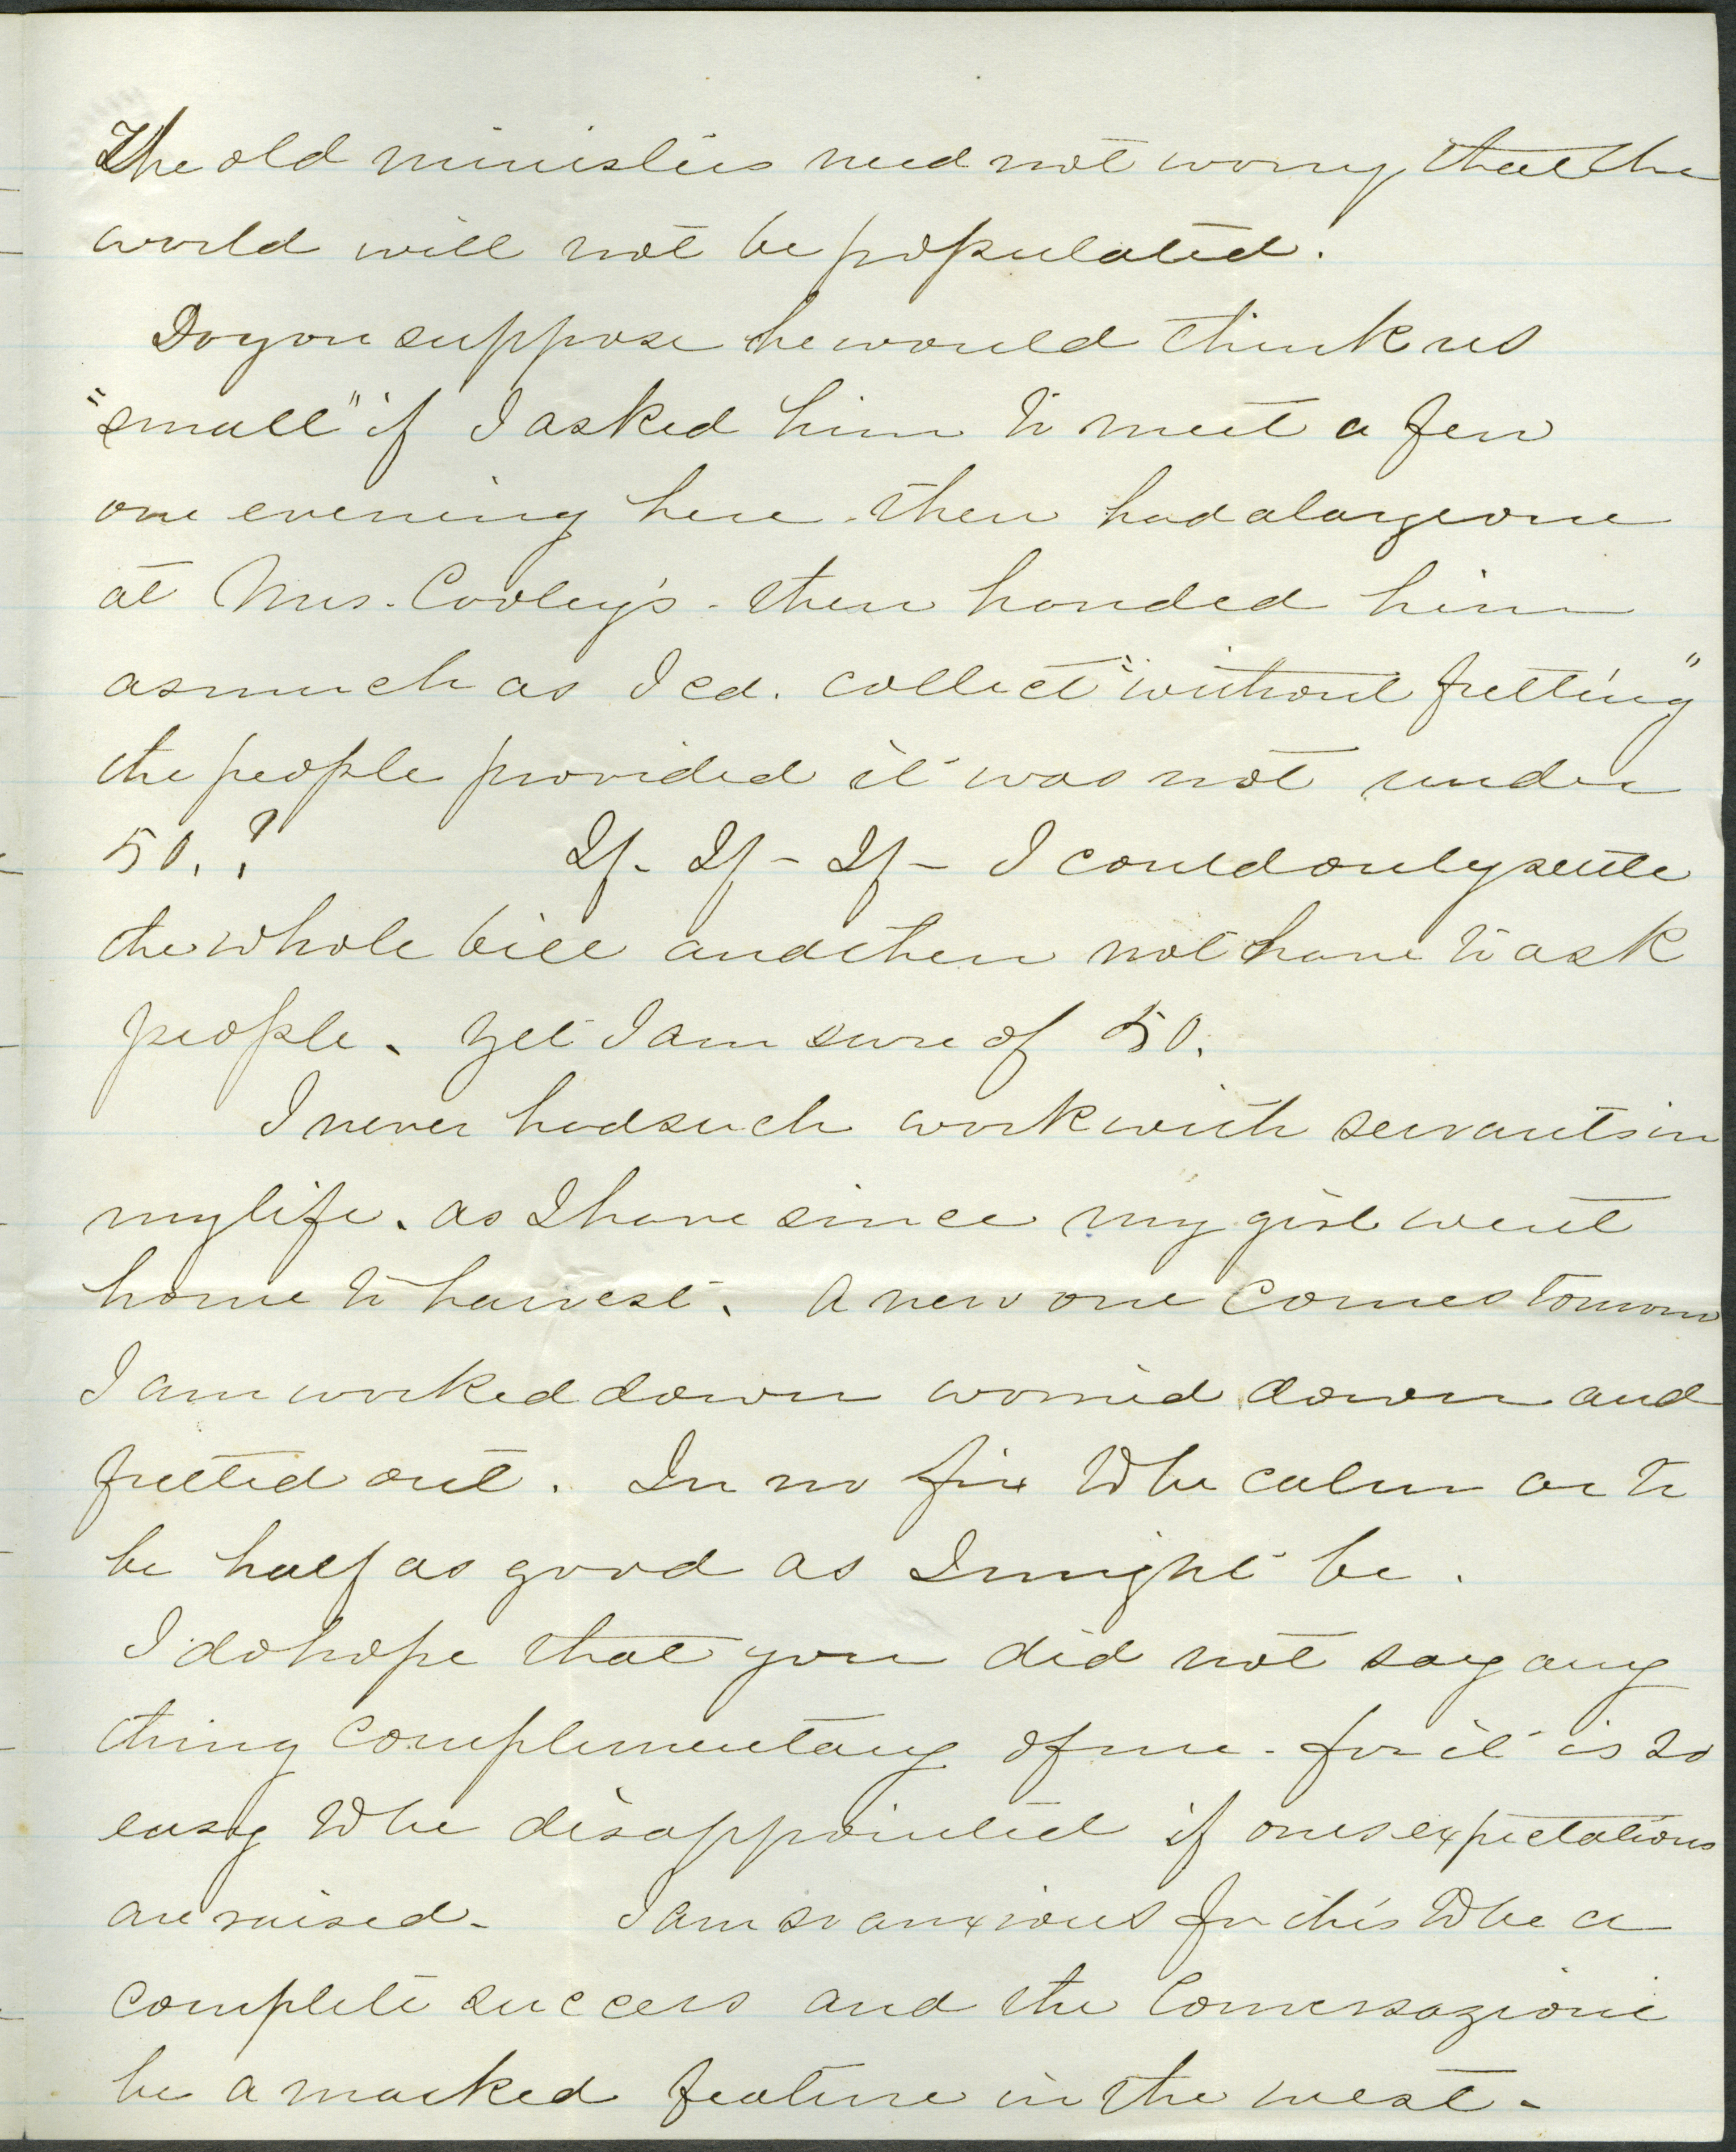 The old ministers need not worry, that the
world will not be populated.
Do you suppose he would think us
"small" if I asked him to meet a few
one evening here - then had a large one
at Mrs. Cooley's - then handed him
as much as I cd. collect "without fretting"
the people provided it was not under
50.? If - If - If - I could only settle
the whole bill and then not have to ask
people. Yet I am sure of 50.
I never had such work with servants in
my life. as I have since my girl went
home to harvest. A new one comes tomorrow
I am worked down worried down and
fretted out. In no fix to be calm or to
be half as good as I might be.
I do hope that you did not say any
thing complimentary of me - for it is so
easy to be disappointed if ones expectations
are raised - I am so anxious for this to be a
complete success and the Conversazione
be a marked feature in the west -